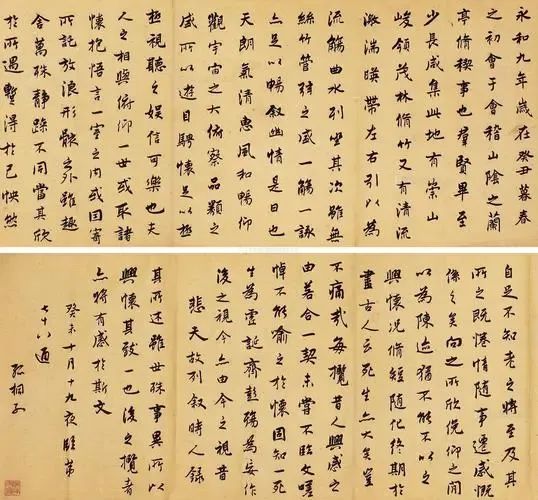 永和九年歲在癸丑暮春
之初會于會稽山陰之蘭
亭脩稧事也羣賢畢至
少長咸集此地有崇山
峻領茂林脩竹又有清流
激湍暎帶左右引以為
流觴曲水列坐其次雖無
絲竹管弦之盛一觴一詠
亦足以暢敘幽情是日也
天朗氣清惠風和暢仰
觀宇宙之大俯察品類之
盛所以遊目騁懷足以極
極視聽之娛信可樂也夫
人之相與俯仰一世或取諸
懷抱悟言一室之內或因寄
所託放浪形骸之外雖趣
舍萬殊靜躁不同當其欣
於所遇暫得於己怏然
自足不知老之將至及其
所之既惓情隨事遷感慨
係之矣向之所欣俛仰之閒
以為陳迹猶不能不以之
興懷況脩短隨化終期於
盡古人云死生亦大矣豈
不痛哉每攬昔人興感之
由若合一契未嘗不臨文嗟
悼不能喻之於懷固知一死
生為虛誕齊彭殤為妄作
後之視今亦由今之視昔
悲夫故列敘時人錄
其所述雖世殊事異所以
興懷其致一也後之攬者
亦將有感於斯文
癸未十月十九夜臨第
七十八通